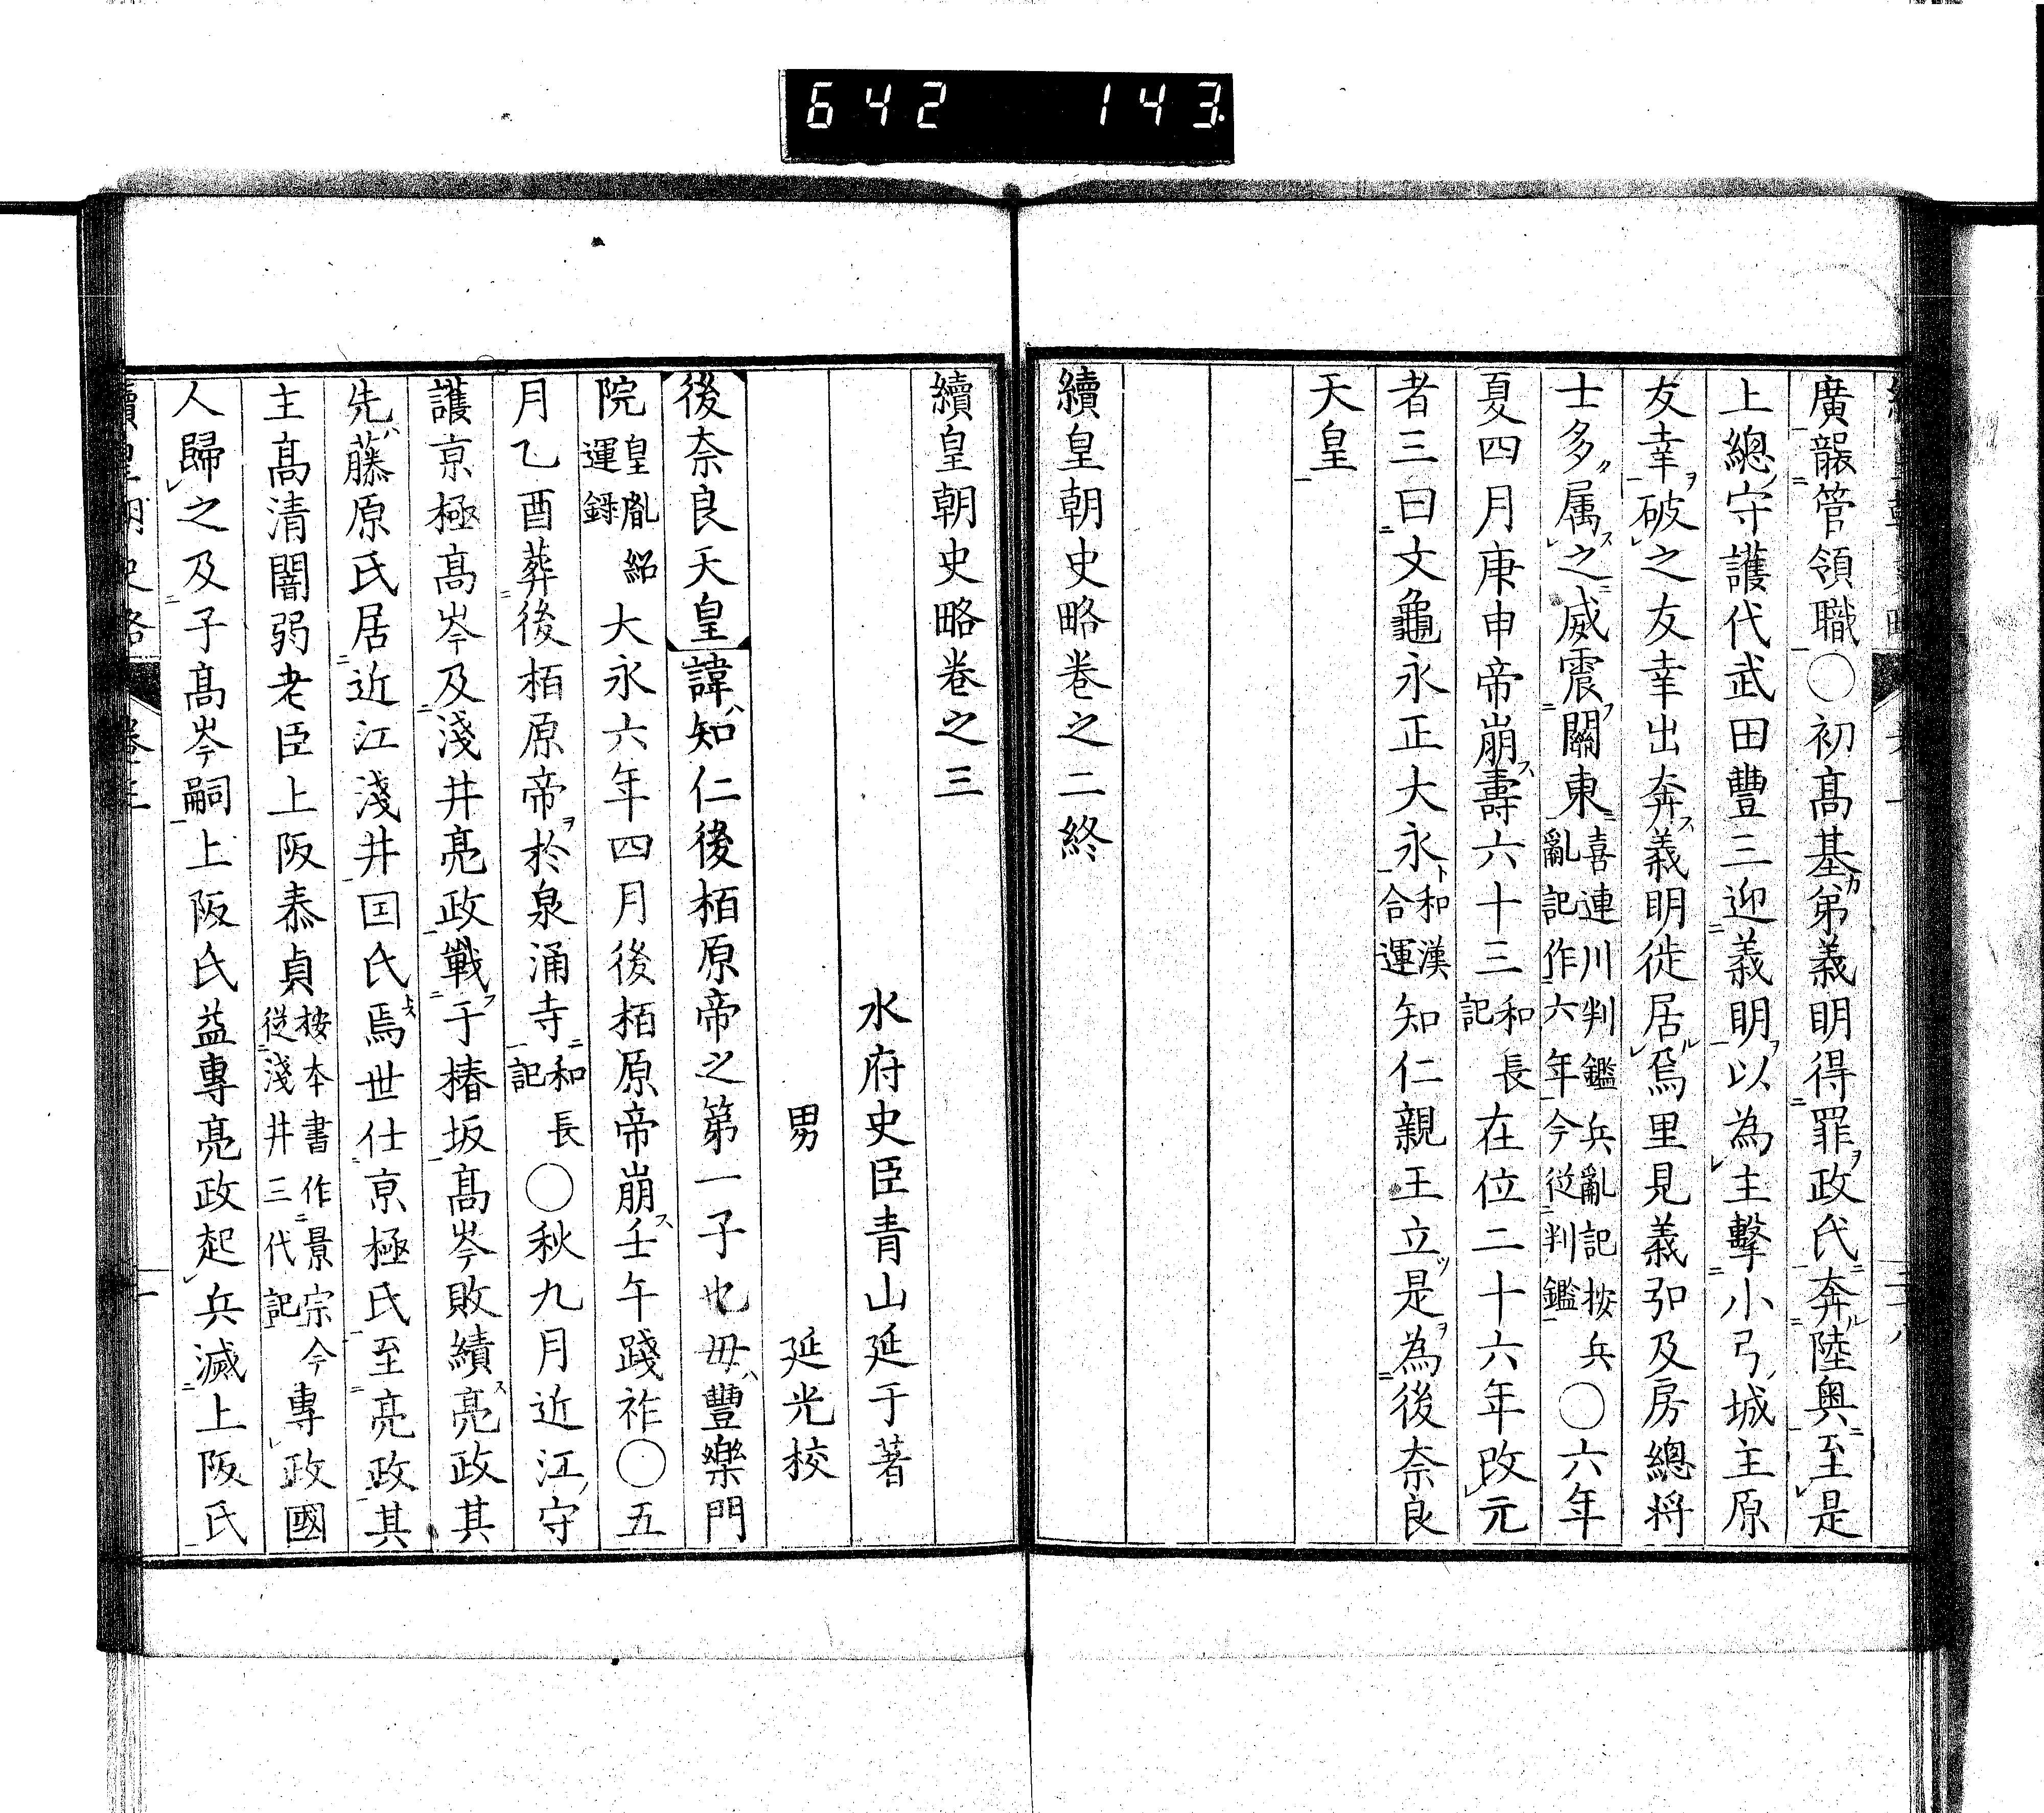 642 143
廣龑管領職○初髙基弟義明得罪政氏奔陸奥至是
上總守護代武田豐三迎義明以為主擊小弓城主原
友幸破之友幸出奔義明徙居焉里見義弘及房總將
士多属之威震關東喜連川判鑑兵亂記按兵亂記作六年今從判鑑○六年
夏四月庚申帝崩壽六十三和長記在位二十六年改元
者三曰文龜永正大永和漢合運知仁親王立是為後奈良
天皇
續皇朝史略卷之二終
續皇朝史略卷之三
水府史臣青山延于著
男 延光校
後奈良天皇諱知仁後栢原帝之第一子也毋豐樂門
院皇胤紹運録大永六年四月後栢原帝崩壬午踐祚○五
月乙酉葬後栢原帝於泉涌寺和長記○秋九月近江守
護京極髙岑及淺井亮政戰于椿坂髙岑敗績亮政其
先藤原氏居近江淺井因氏焉世仕京極氏至亮政其
主髙清闇弱老臣上阪泰貞按本書作景宗今從淺井三代記專政國
人歸之及子髙岑嗣上阪氏益專亮政起兵滅上阪氏